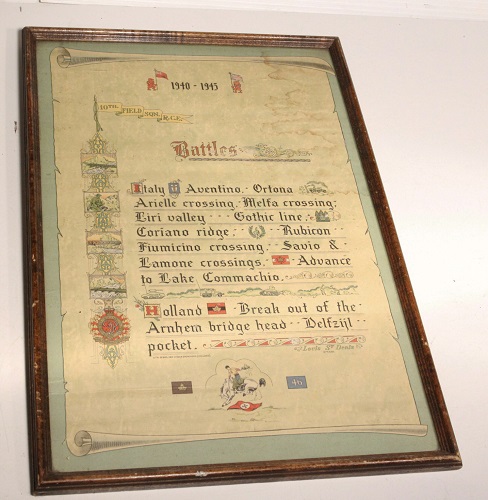 1940 - 1945
10TH. FIELD SQN. R.C.E.
Battles
Italy Aventino. Ortona
Arielle crossing. Melfa crossing.
Liri valley Gothic line.
Coriano ridge. Rubicon
Fiumicino crossing. Savio &
Lamone crossings. Advance
to Lake Commachio.
Holland Break out of the
Arnhem bridge head Delfzijl
pocket.
Louis St Denis
46